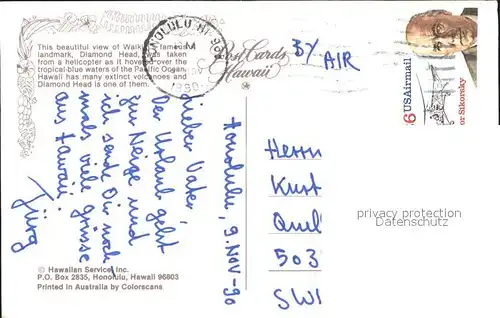 This beautiful view of Waikiki's famous
landmark, Diamond Head, was taken
from a helicopter as it hovered over the
tropical-blue waters of the Pacific Ocean.
Hawaii has many extinct volcanoes and
Diamond Head is one of them.
HONOLULU HI 968
PM
1990
Post Cards
Hawaii
BY
AIR
USAirmail
or Sikorsky
Honolulu, 9. Nov-90
Lieber Vater,
Der Urlaub geht
zur Neige und
ich sende Dir noch,
mals viele grüsse
aus Hawaii.
Jürg
Herrn
Kurt
503
SWI
privacy protection
Datenschutz
© Hawaiian Service, Inc.
P.O. Box 2835, Honolulu, Hawaii 96803
Printed in Australia by Colorscans